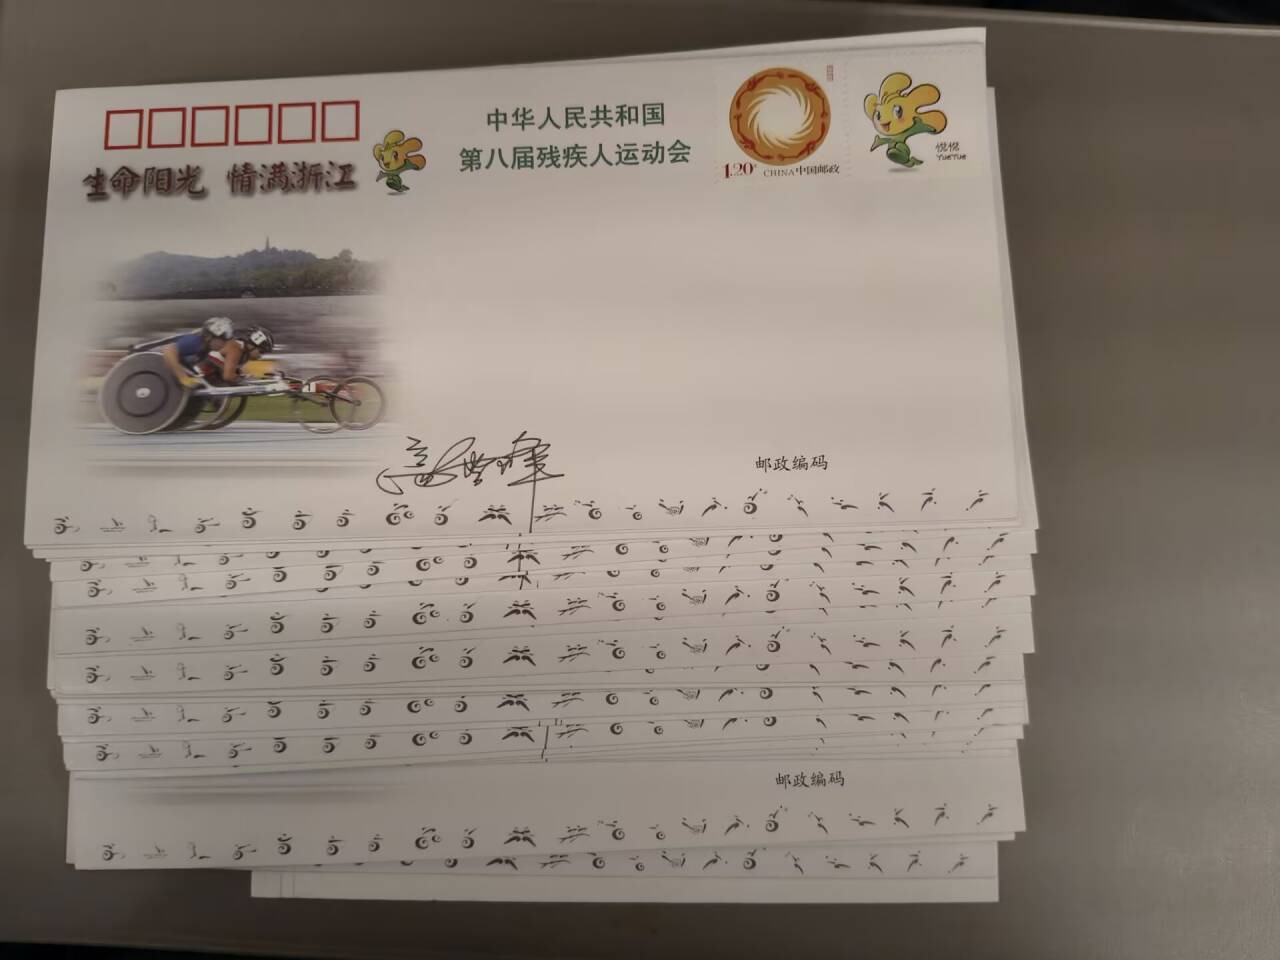 中华人民共和国
第八届残疾人运动会
生命阳光 情满浙江
1.20元 CHINA中国邮政
悦悦
YueYue
邮政编码
邮政编码